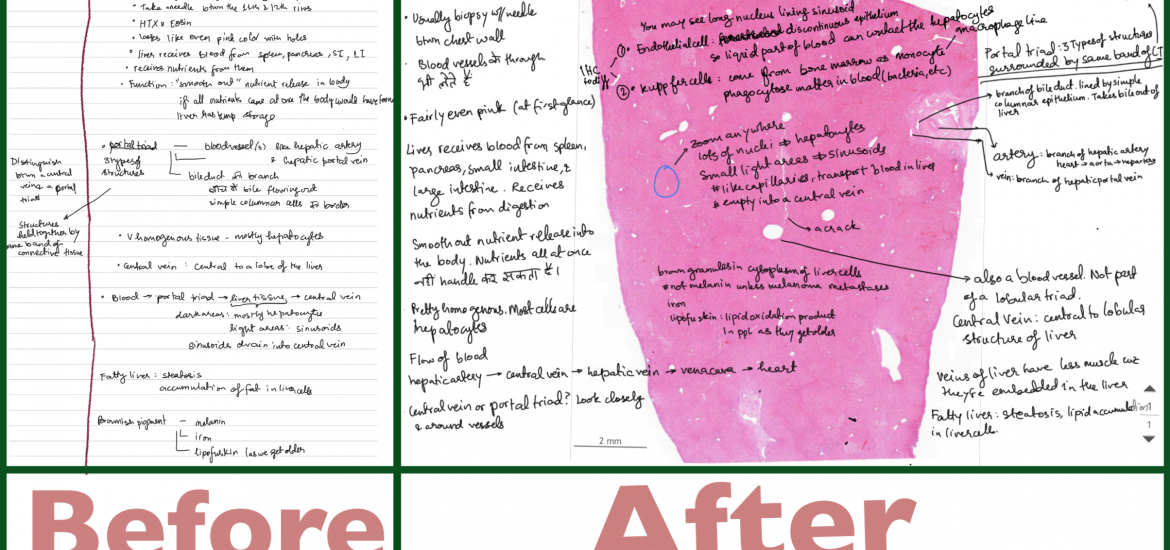 • Take needle btwn the 11th & 12th ribs
• HTX & Eosin
• Looks like even pink cold with holes
• liver receives blood from spleen, pancreas, SI, LI
• receives nutrients from them
• Function: "smooth out" nutrient release in body
if all nutrients came at once the body would have
liver has temp storage
• portal triad — blood vessel(s) like hepatic artery
3 types of
structures
& hepatic portal vein
bile duct branch
bile flowing out
simple columnar cells border
Distinguish
btwn a central
vein & portal
triad
Structures
held together by
same band of
connective tissue
• V homogenous tissue – mostly hepatocytes
• Central vein : central to a lobe of the liver
• Blood → portal triad → liver tissue → central vein
dark areas: mostly hepatocyte
light areas: sinusoids
Sinusoids drain into central vein
Fatty liver : steatosis
accumulation of fat in liver cells
Brownish pigment – melanin
iron
lipofuskin as we get older
• Usually biopsy w/ needle
btwn chest wall
• Blood vessels के through
• Fairly even pink (at first glance)
Liver receives blood from spleen,
pancreas, small intestine, &
large intestine. Receives
nutrients from digestion
Smooth out nutrient release into
the body. Nutrients all at once
नहीं handle कर सकता है।
Pretty homogenous. Most cells are
hepatocytes
Flow of blood
hepatic artery → central vein → hepatic vein → vena cava → heart
Central vein or portal triad? Look closely
& around vessels
You may see long nucleus lining sinusoid
① Endothelial cell : discontinuous epithelium
so liquid part of blood can contact the hepatocytes
IHC
② Kupffer cells : come from bone marrow as monocyte
macrophage line
phagocytose matter in blood (bacteria, etc)
zoom anywhere
lots of nuclei ⇒ hepatocytes
Small light areas ⇒ sinusoids
* like capillaries, transport blood in liver
* empty into a central vein
a crack
brown granules in cytoplasm of liver cells
* not melanin unless melanoma metastases
iron
lipofuskin : lipid oxidation product
In ppl as they get older
Portal triad : 3 Types of structures
surrounded by same band of CT
branch of bile duct. lined by simple
columnar epithelium. Takes bile out of
liver
artery : branch of hepatic artery
heart → aorta →
vein: branch of hepatic portal vein
also a blood vessel. Not part
of a lobular triad.
Central Vein: central to lobular
structure of liver
Veins of liver have less muscle cuz
they're embedded in the liver
Fatty liver: steatosis, lipid accumulation
in liver cell.
1
2 mm
Before
After